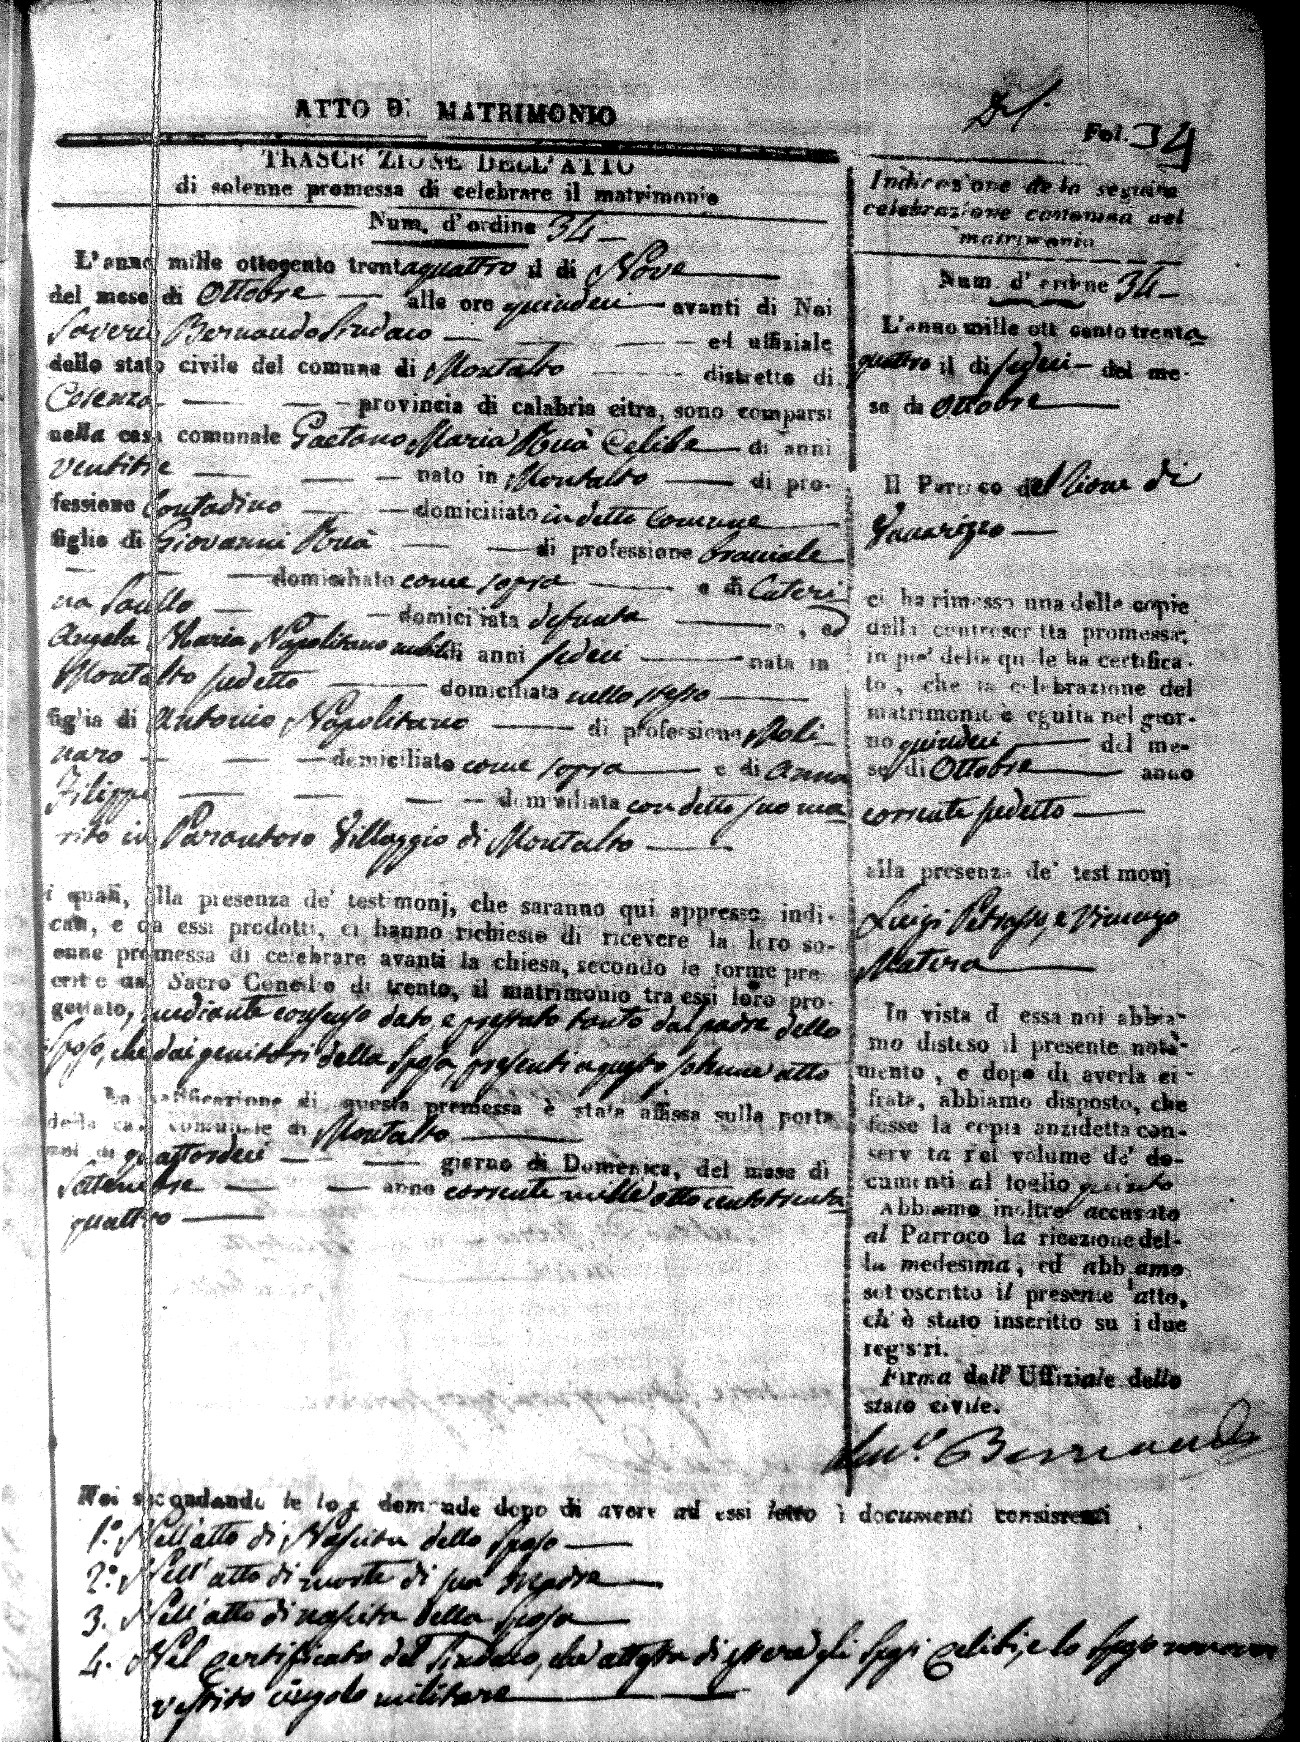 ATTO DI MATRIMONIO
Fol. 34
TRASCRIZIONE DELL'ATTO
di solenne promessa di celebrare il matrimonio
Num. d'ordine 34
L'anno mille ottocento trentaquattro il di Nove
del mese di Ottobre alle ore quindeci avanti di Noi
Saverio Bernaudo Sindaco ed uffiziale
dello stato civile del comune di Montalto distretto di
Cosenza provincia di calabria citra, sono comparsi
nella casa comunale Gaetano Maria Ruà Celibe di anni
ventitre nato in Montalto di pro-
fessione Contadino domiciliato in detto Comune
figlio di Giovanni Ruà di professione braciale
domiciliato come sopra e di Cateri
na domiciliata defunta ed
Angela Maria Napolitano nubile di anni sedeci nata in
Montalto sudetto domiciliata nello stesso
figlia di Antonio Napolitano di professione Moli-
naro domiciliato come sopra e di Anna
Filippo domiciliata con detto suo ma
rito in Parantoro Villaggio di Montalto
i quali, alla presenza de' testimonj, che saranno qui appresso indi-
cati, e da essi prodotti, ci hanno richiesto di ricevere la loro so-
enne promessa di celebrare avanti la chiesa, secondo le forme pre
scritte dal Sacro Concilio di trento, il matrimonio tra essi loro pro-
gettato, mediante consenso dato, e prestato tanto dal padre dello
Sposo, che dai genitori della Sposa, presenti a questo solenne atto
La notificazione di questa promessa è stata affissa sulla porta
della casa comunale di Montalto
nel di quattordeci giorno di Domenica, del mese di
Settembre anno corrente mille ottocento trenta
quattro
Noi secondando le loro domande dopo di avere ad essi letto i documenti consistenti
1.° Nell'atto di Nascita dello Sposo
2.° Nell'atto di morte di sua Madre
3. Nell'atto di nascita della Sposa
4. Nel certificato del Sindaco, che attesta di essere gli Sposi celibi, e lo Sposo non aver
vestito cingolo militare
Indicazione della seguita
celebrazione canonica del
matrimonio
Num. d'ordine 34
L'anno mille ottocento trenta
quattro il di sedeci del me-
se di Ottobre
Il Parroco del Rione di
Vaccarizzo
ci ha rimesso una delle copie
della controscritta promessa;
in pie' della quale ha certifica-
to, che la celebrazione del
matrimonio è seguita nel gior-
no quindeci del me-
se di Ottobre anno
corrente sudetto
alla presenza de' testimonj
Luigi e Vincenzo
Matera
In vista di essa noi abbia-
mo disteso il presente nota-
mento, e dopo di averla ci-
frata, abbiamo disposto, che
fosse la copia anzidetta con-
servata nel volume de' do-
cumenti al foglio quinto
Abbiamo inoltre accusato
al Parroco la ricezione del-
la medesima, ed abbiamo
sottoscritto il presente atto,
ch'è stato inscritto su i due
registri.
Firma dell'Uffiziale dello
stato civile.
Bernaudo